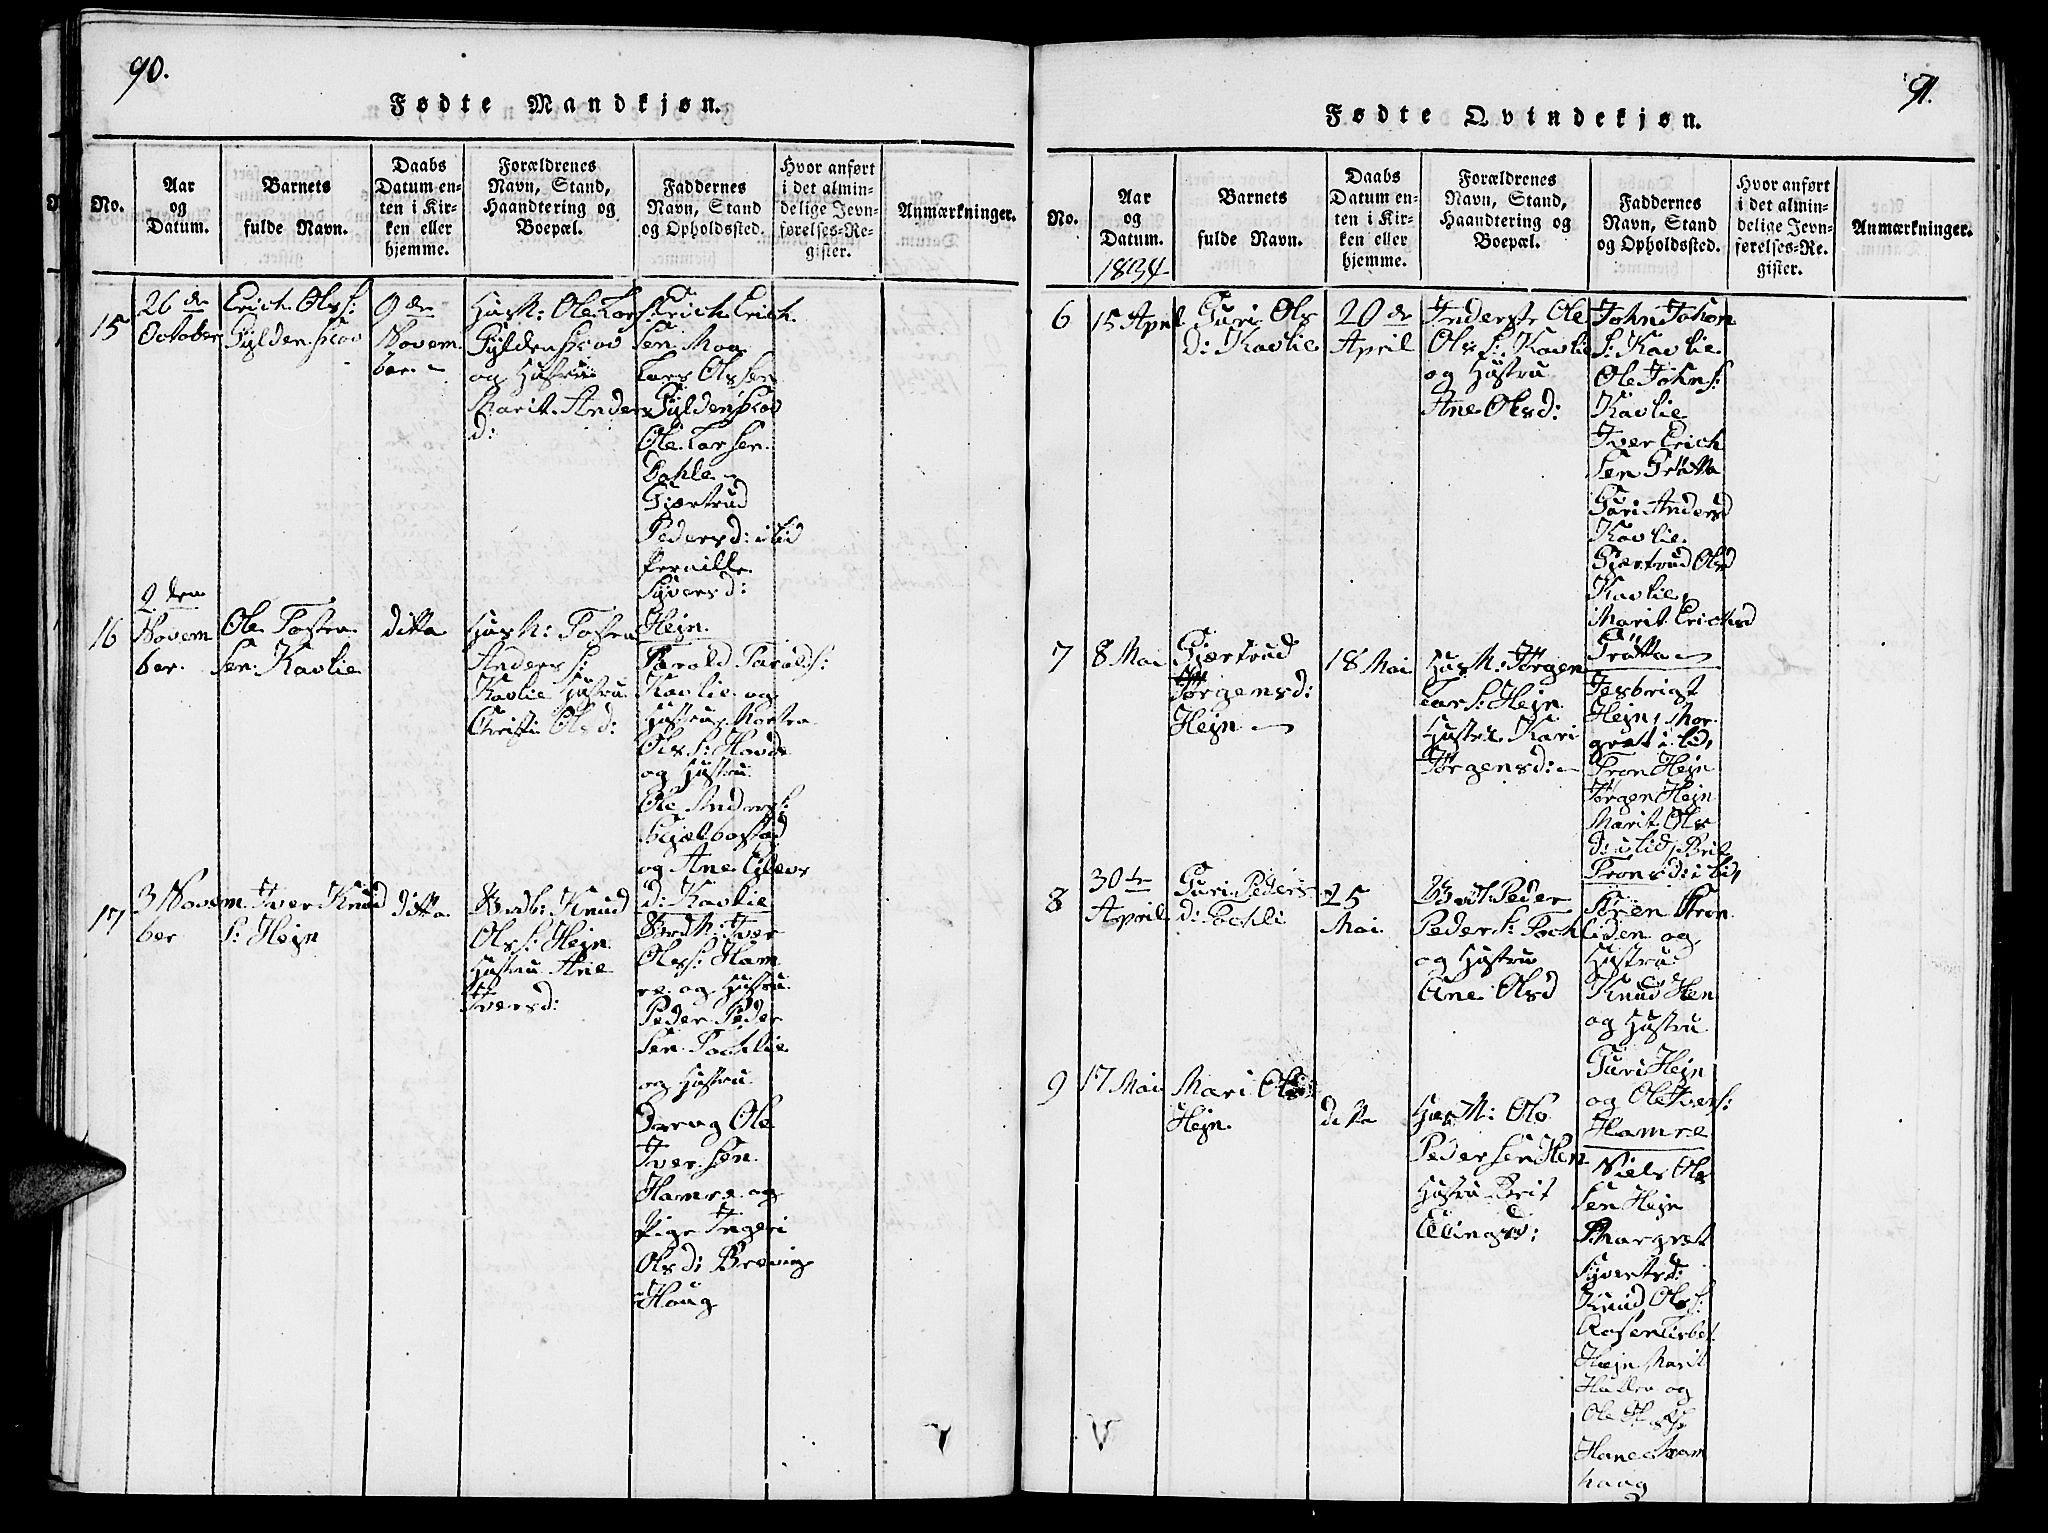 90.
Fødte Mandkjøn.
No.
Aar
og
Datum.
Barnets
fulde Navn.
Daabs
Datum en-
ten i Kir-
ken eller
hjemme.
Forældrenes
Navn, Stand,
Haandtering og
Boepæl.
Faddernes
Navn, Stand
og Opholdssted.
Hvor anført
i det almin-
delige Jevn-
førelses-Re-
gister.
Anmærkninger.
15
26 de
October
Erich Olss:
Gyldenskov
9 de
Novem
ber.
HusM: Ole Lars:
Gyldenskov
og Hustru
Marit Anders
d:
Erich Erich
sen Moa
Lars Olssen
Gyldenskov
Ole Larsen
Dahle
Giærtrud
Pedersd: i lid
Pernille
Syversd:
Hejn
16
2 den
Novem
ber.
Ole Tosten
sen Kavlie
ditto
HusM: Tosten
Anders S:
Kavlie Hustru
Christi Olsd:
Tarald Taralds:
Kavlie og
Hustru
Ols S: Hovde
og Hustru
Ole Anders:
Hjelbostad
og Ane
d: Kavlie
17
3 Novem
ber
Iver Knud
S: Hejn
ditto
Knud
Ols S: Hejn
Hustru Ane
Iversd:
Iver
Olss: Ham
re og Hustru
Peder Peder
sen Tochlie
og Hustru
Dreng Ole
Iversen
Hamre og
Pige Ingeri
Olsd: Breving
Houg
91.
Fødte Qvindekjøn.
No.
Aar
og
Datum.
1834
Barnets
fulde Navn.
Daabs
Datum en-
ten i Kir-
ken eller
hjemme.
Forældrenes
Navn, Stand,
Haandtering og
Boepæl.
Faddernes
Navn, Stand
og Opholdssted.
Hvor anført
i det almin-
delige Jevn-
førelses-Re-
gister.
Anmærkninger.
6
15 April
Guri Ols
d: Kavlie
20 de
April
Inderst Ole
Ols S: Kavlie
og Hustru
Ane Olsd:
John John
S: Kavlie
Ole Johns:
Kavlie
Iver Erich
sen Grøtta
Guri Andersd
Kavlie
Gjertrud Olsd
Kavlie
Marit Erichsd
Grøtta
7
8 Mai
Gjertrud
Jørgensd:
Hejn
18 Mai
HusM: Jørgen
Lars: Hejn
Hustru Kari
Jørgensd:
Hejn, Mar
gret i lid,
Tron Hejn
Jørgen Hejn
Marit Ols
d: i lid, Brit
Tronsd: i lid,
8
30 te
April
Guri Peders
d: Tochli
25
Mai
Peder
Peder S: Tochli
og Hustru
Ane Olsd
Søren Tron
liden og
Hustru
Knud Hen
og Hustru
Guri Hejn
og Ole Ivers:
Hamre
9
17 Mai
Mari Ols
Hejn.
ditto
HusM: Ole
Pedersen Hen
Hustru Brit
Elingsd:
Niels Ols
sen Hejn
Margret
Syvertsd:
Knud Ols S:
Hejn Marit
og
Ole
haug